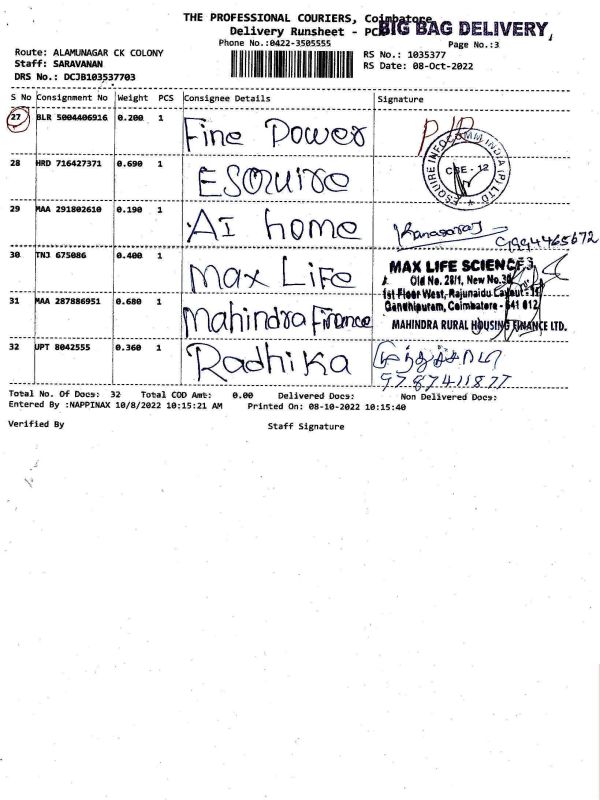 THE PROFESSIONAL COURIERS, Coimbatore
BIG BAG DELIVERY,
Delivery Runsheet - PC
Phone No.:0422-3505555
Page No.:3
Route: ALAMUNAGAR CK COLONY
RS No.: 1035377
Staff: SARAVANAN
RS Date: 08-Oct-2022
DRS No.: DCJB103537703
S No Consignment No Weight PCS Consignee Details Signature
27 BLR 5004406916 0.200 1 Fine Power
ESQUIRE INFOCOMM INDIA (P) LTD
CBE - 12
28 HRD 716427371 0.690 1 ESQUIRE
29 MAA 291802610 0.190 1 AI home Kanagaraj 9994465672
30 TNJ 675086 0.400 1 Max Life
MAX LIFE SCIENCES
Old No. 28/1, New No.30
1st Floor West, Rajunaidu Layout - 11
Gandhipuram, Coimbatore - 641 012
31 MAA 287886951 0.680 1 Mahindra Finance
MAHINDRA RURAL HOUSING FINANCE LTD.
32 UPT 8042555 0.360 1 Radhika
9787411877
Total No. Of Docs: 32 Total COD Amt: 0.00 Delivered Docs: Non Delivered Docs:
Entered By :NAPPINAX 10/8/2022 10:15:21 AM Printed On: 08-10-2022 10:15:40
Verified By Staff Signature